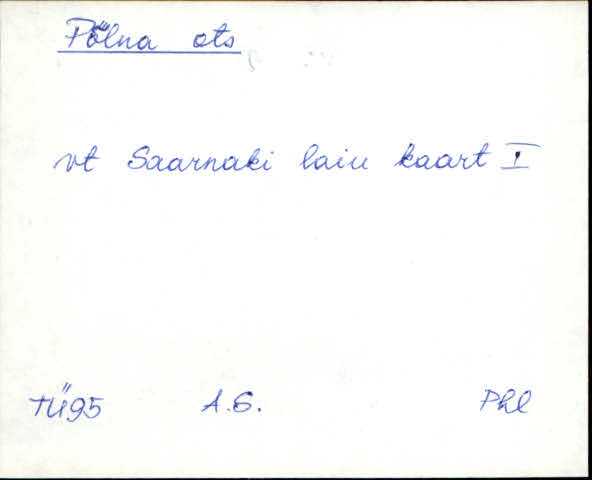 Põlna ots
vt Saarnaki laiu kaart I
TÜ95 A.S. Phl